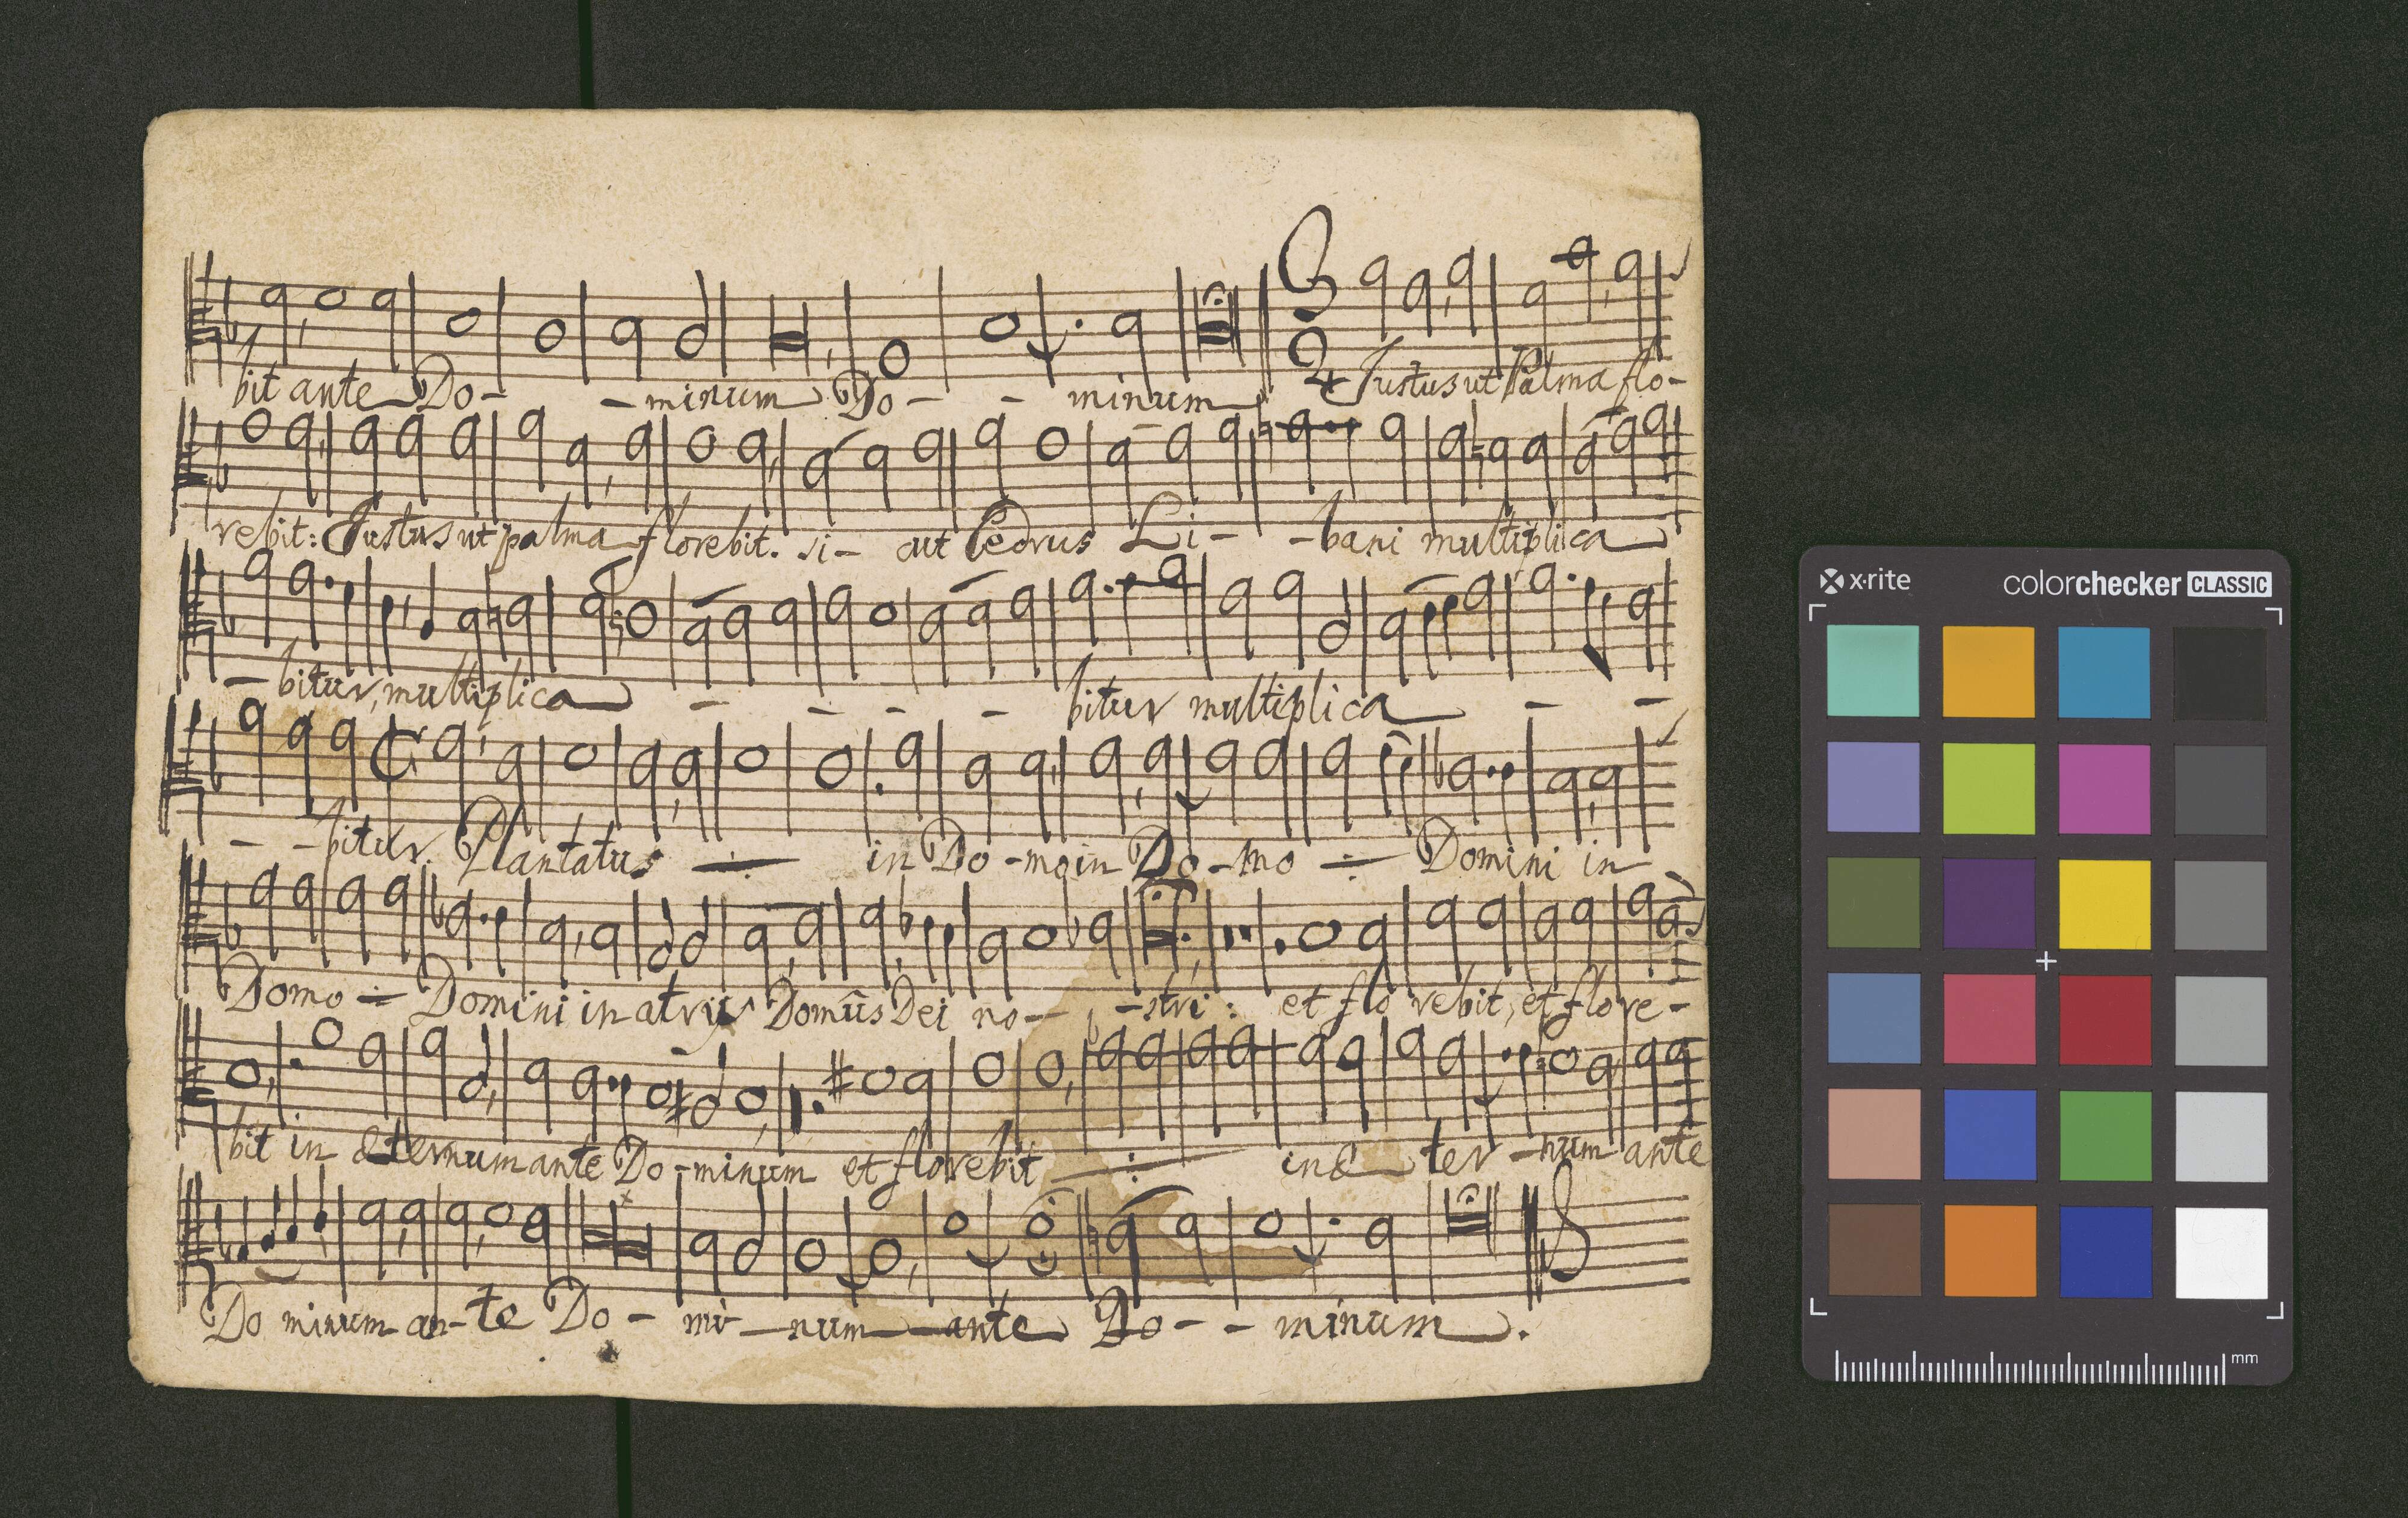 bit ante Do- -minum Do- - minum 3 2 Justus ut Palma flo-
rebit: Justus ut palma florebit. si- cut Cedrus Li- -bani multiplica
-bitur, multiplica - - - - bitur multiplica - -
- -bitur. Plantatus ÷ in Do-mo in Do-mo ÷ Domini in
Domo ÷ Domini in atrijs Domûs Dei no- -stri: et flo rebit, et flore-
bit in æternum ante Do-minum et florebit ÷ in æ ter-num ante
Do minum an-te Do- mi-num ante Do- - minum.
x-rite colorchecker CLASSIC
mm